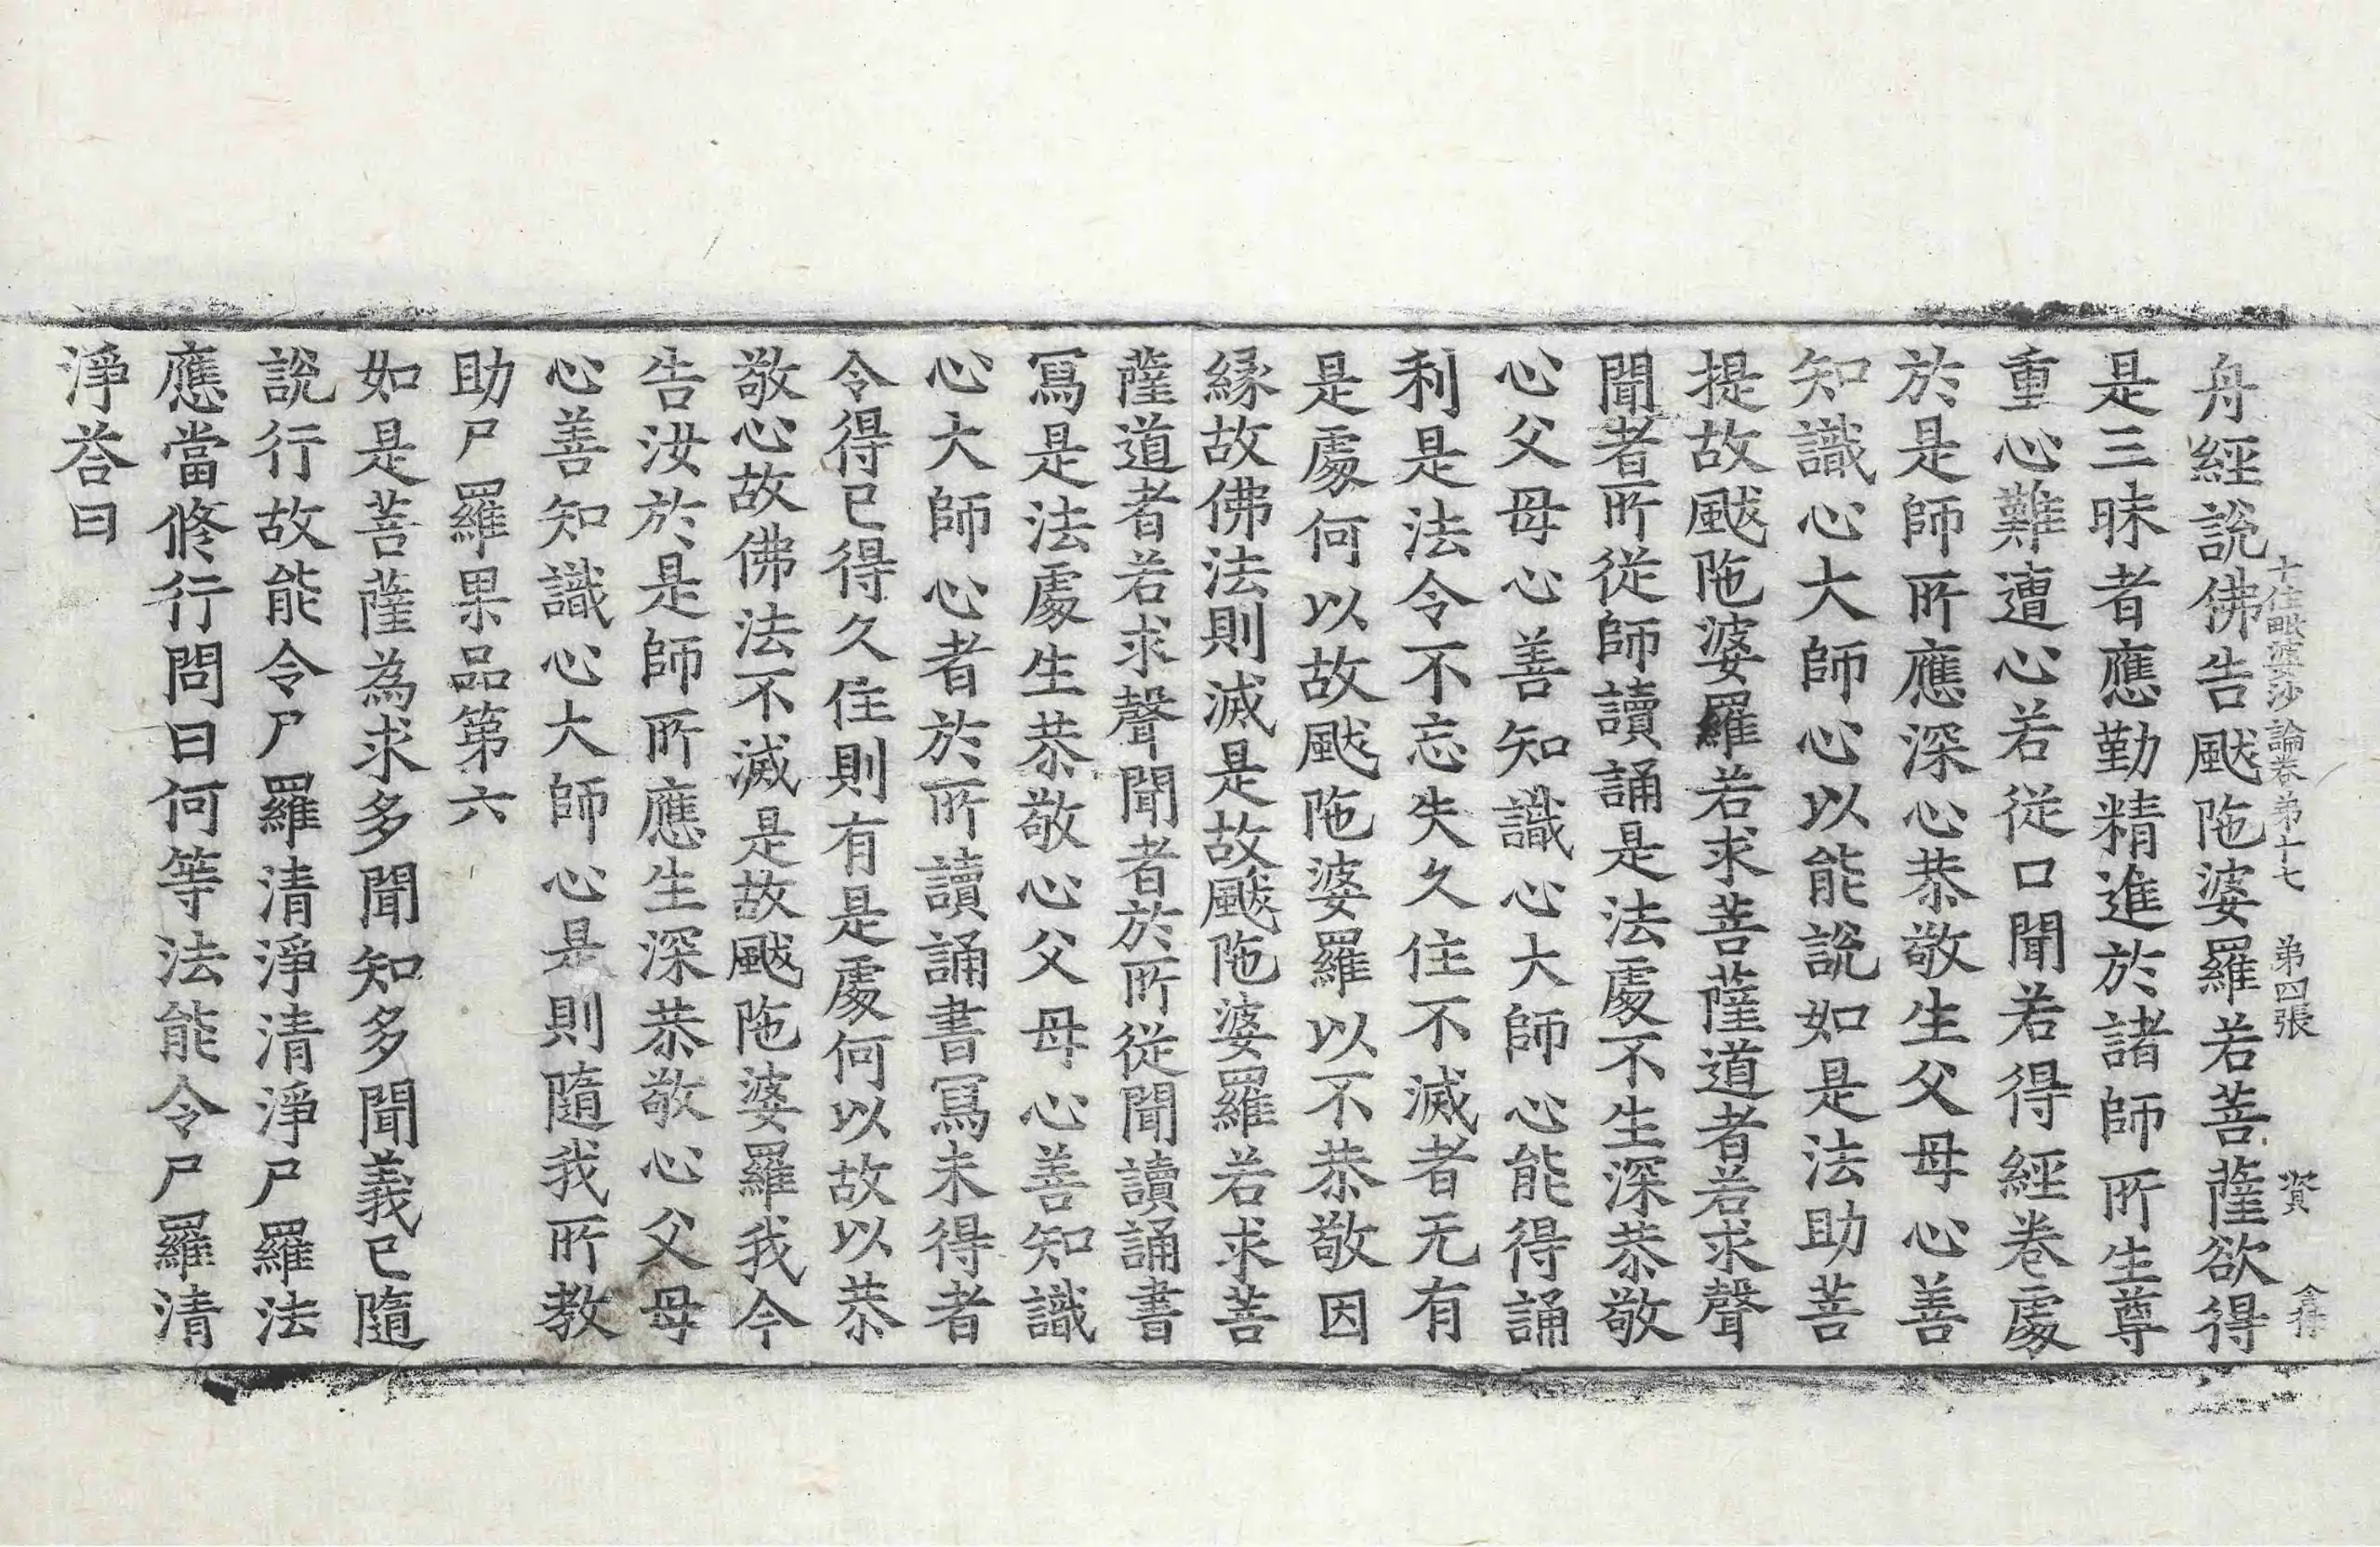 舟經說佛告颰陁婆羅若菩薩欲得
十住毗婆沙論卷第十七 第四張 資
是三昧者應勤精進於諸師所生尊
重心難遭心若從口聞若得經卷處
於是師所應深心恭敬生父母心善
知識心大師心以能說如是法助菩
提故颰陁婆羅若求菩薩道者若求聲
聞者所從師讀誦是法處不生深恭敬
心父母心善知識心大師心能得誦
利是法令不忘失久住不滅者无有
是處何以故颰陁婆羅以不恭敬因
緣故佛法則滅是故颰陁婆羅若求菩
薩道者若求聲聞者於所從聞讀誦書
寫是法處生恭敬心父母心善知識
心大師心者於所讀誦書寫未得者
令得已得久住則有是處何以故以恭
敬心故佛法不滅是故颰陁婆羅我今
告汝於是師所應生深恭敬心父母
心善知識心大師心是則隨我所教
助尸羅果品第六
如是菩薩為求多聞知多聞義已隨
說行故能令尸羅清淨清淨尸羅法
應當修行問曰何等法能令尸羅清
淨荅曰